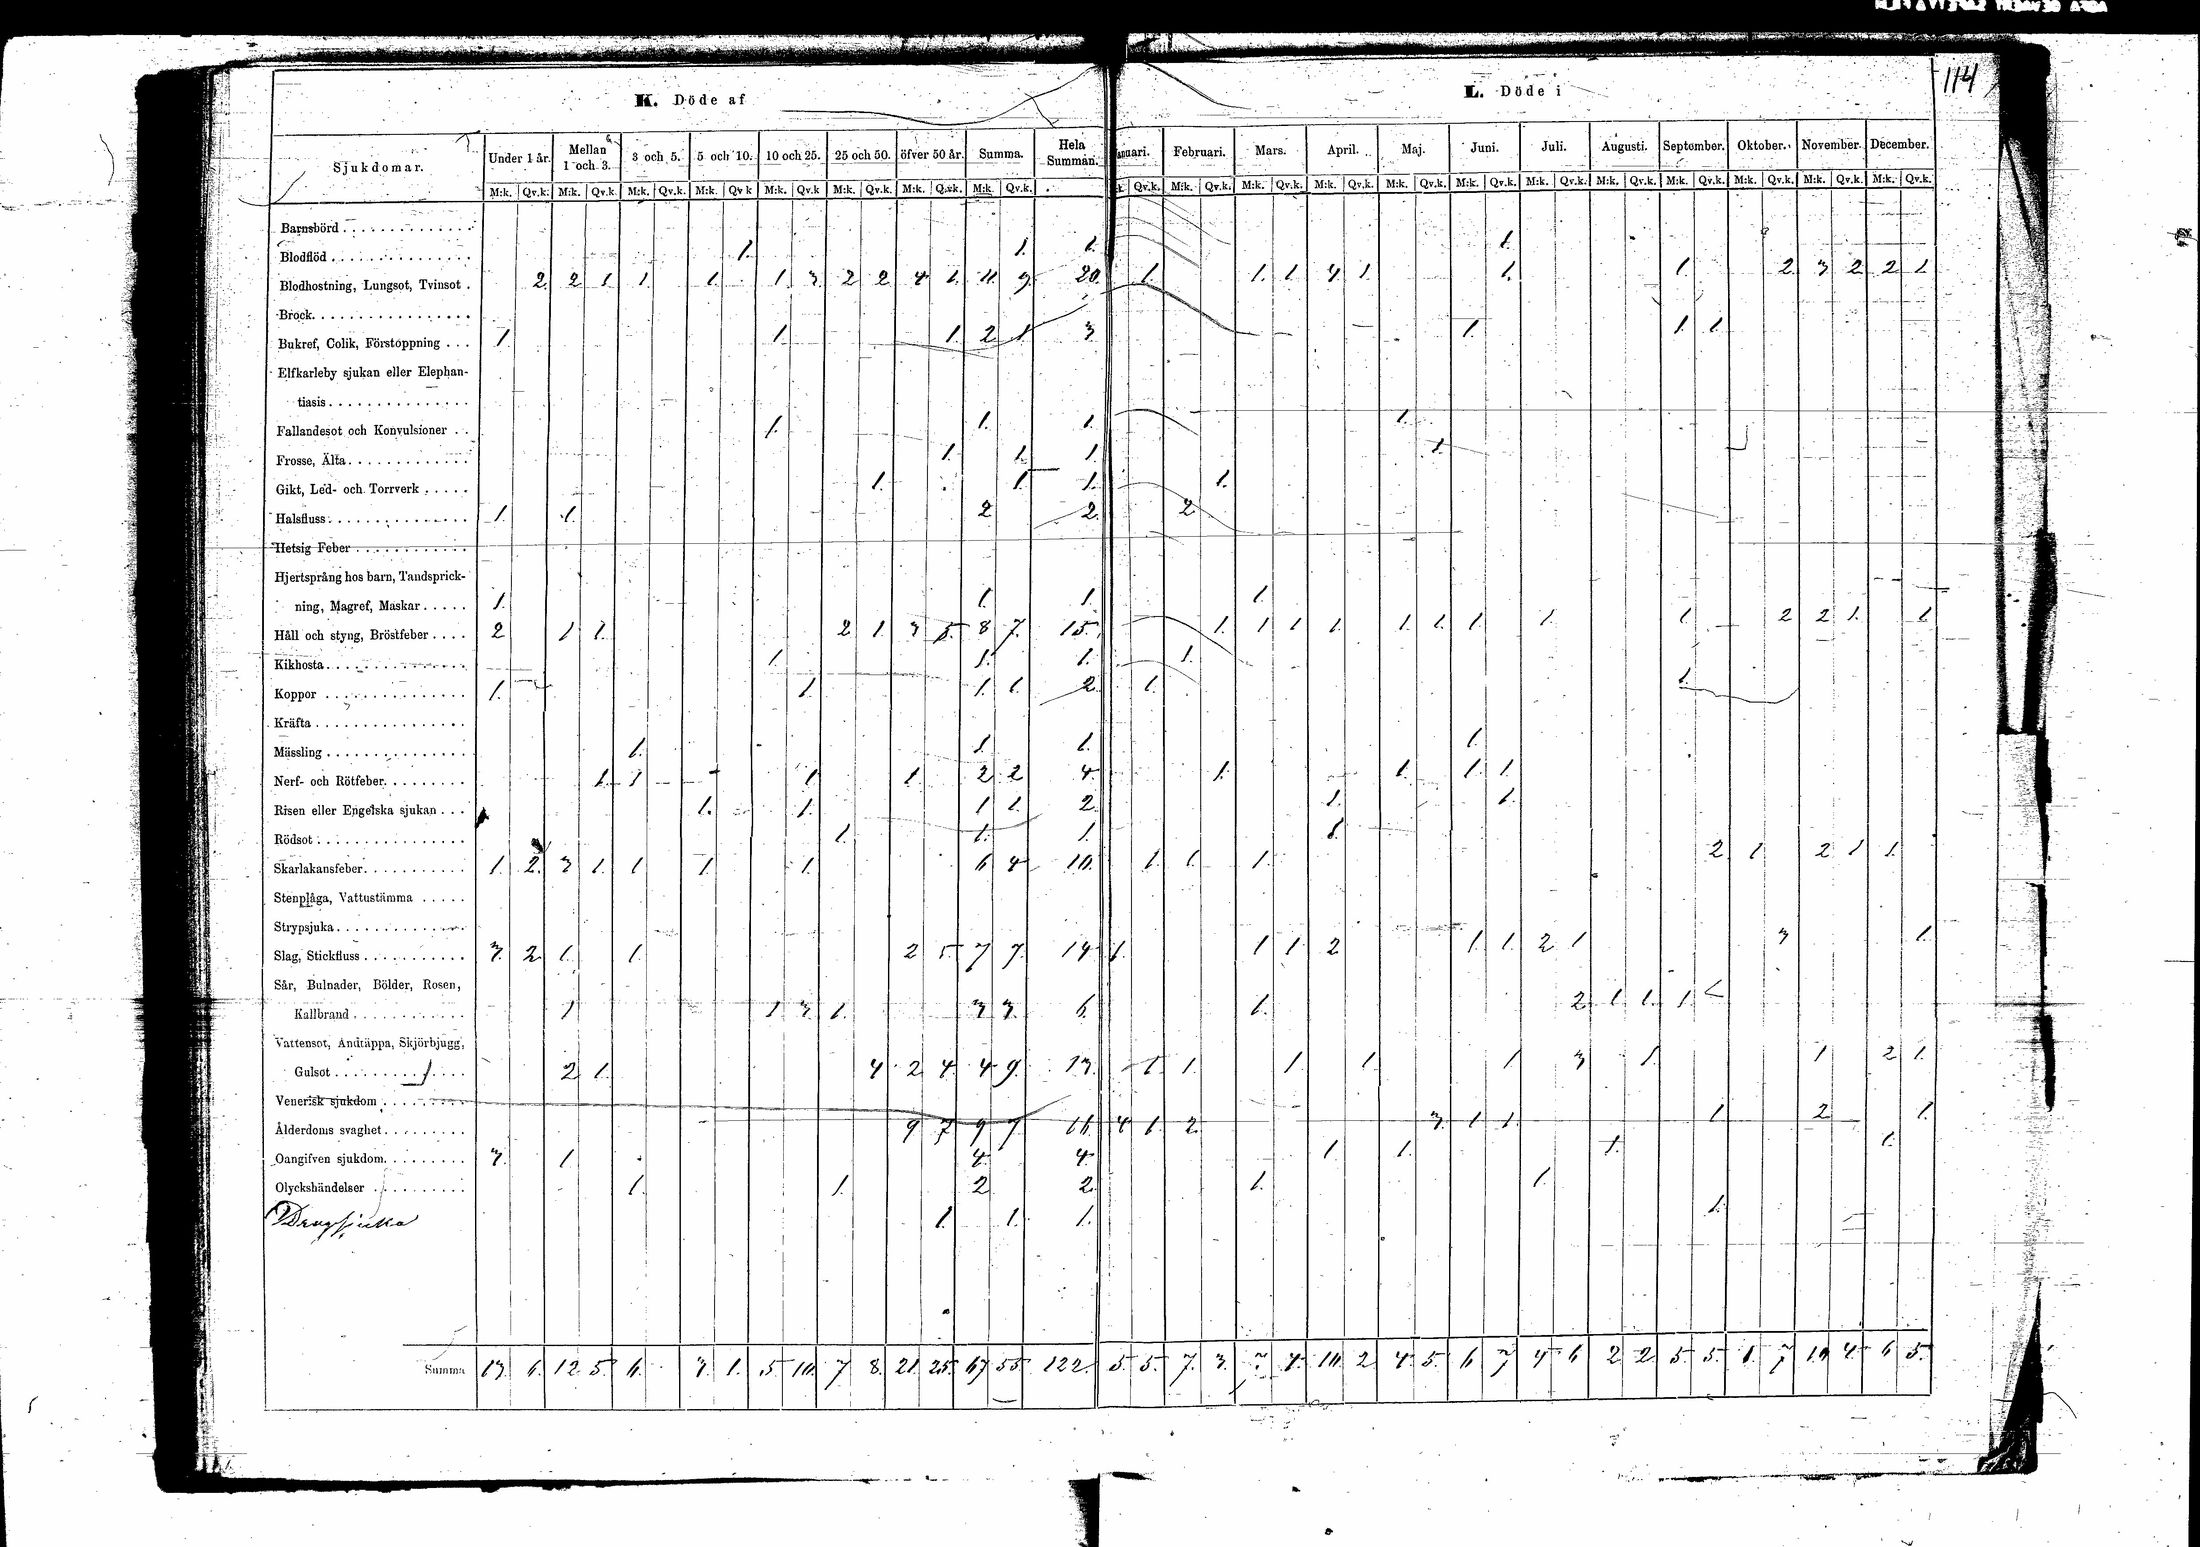 114
K. Döde af
L. Döde i
Sjukdomar. Under 1 år. Mellan 1 och 3. 3 och 5. 5 och 10. 10 och 25. 25 och 50. öfver 50 år. Summa. Hela Summan. anuari. Februari. Mars. April. Maj. Juni. Juli. Augusti. September. Oktober. November. December.
M:k. Qv.k. M:k. Qv.k. M:k. Qv.k. M:k. Qv k M:k. Qv.k M:k. Qv.k. M:k. Qv.k. M:k. Qv.k. k. Qv.k. M:k. Qv.k. M:k. Qv.k. M:k. Qv.k. M:k. Qv.k. M:k. Qv.k. M:k. Qv.k. M:k. Qv.k. M:k. Qv.k. M:k. Qv.k. M:k. Qv.k. M:k. Qv.k.
Barnsbörd
Blodflöd 1. 1. 1. 1.
Blodhostning, Lungsot, Tvinsot 2 2 1 1 1. 1 3 2 2 4 1. 11. 9. 20. 1. 1 1 4 1 1. 1 2 3 2 2 1
Brock
Bukref, Colik, Förstoppning 1 1 1. 2 1 3 1. 1 1
Elfkarleby sjukan eller Elephan-
tiasis
Fallandesot och Konvulsioner 1. 1. 1. 1.
Frosse, Älta 1 1 1 1.
Gikt, Led- och Torrverk 1. 1. 1. 1.
Halsfluss 1. 1. 2 2 2
Hetsig Feber
Hjertsprång hos barn, Tandsprick-
ning, Magref, Maskar 1. 1. 1. 1.
Håll och styng, Bröstfeber 2 1 1. 2 1. 3 5. 8 7. 15. 1. 1 1 1. 1. 1. 1. 1 1 2 2 1. 1
Kikhosta 1. 1. 1. 1.
Koppor 1. 1. 1. 1. 2. 1. 1.
Kräfta
Mässling 1. 1. 1. 1.
Nerf- och Rötfeber 1. 1 1 1 2 2 4. 1. 1. 1 1.
Risen eller Engelska sjukan 1. 1. 1 1. 2. 1. 1.
Rödsot 1. 1. 1. 1.
Skarlakansfeber 1. 2. 3 1. 1 1. 1. 6 4 10. 1. 1. 1. 2 1 2 1 1.
Stenplåga, Vattustämma
Strypsjuka
Slag, Stickfluss 3. 2 1. 1. 2 5. 7 7. 14 1. 1 1 2 1 1. 2 1 3 1.
Sår, Bulnader, Bölder, Rosen,
Kallbrand 1 1 3 1. 3 3. 6. 1. 2 1 1. 1
Vattensot, Andtäppa, Skjörbjugg,
Gulsot 2 1. 4 2 4. 4 9. 13. 1. 1. 1. 1. 1 3 1. 1 2 1.
Venerisk sjukdom
Ålderdoms svaghet 9 7 9 7 16 4 1. 2. 3. 1 1. 1 2 1.
Oangifven sjukdom 3. 1 4. 4. 1. 1. 1. 1.
Olyckshändelser 1. 1. 2 2. 1. 1.
Dragsjuka 1. 1. 1. 1.
Summa 13. 6. 12. 5. 6. 3. 1. 5 10. 7 8. 21. 25. 67 55. 122. 5. 5. 7. 3. 4. 10. 2 4. 5. 6 7 4 6 2 2. 5. 5. 1. 7 10 4. 6 5.